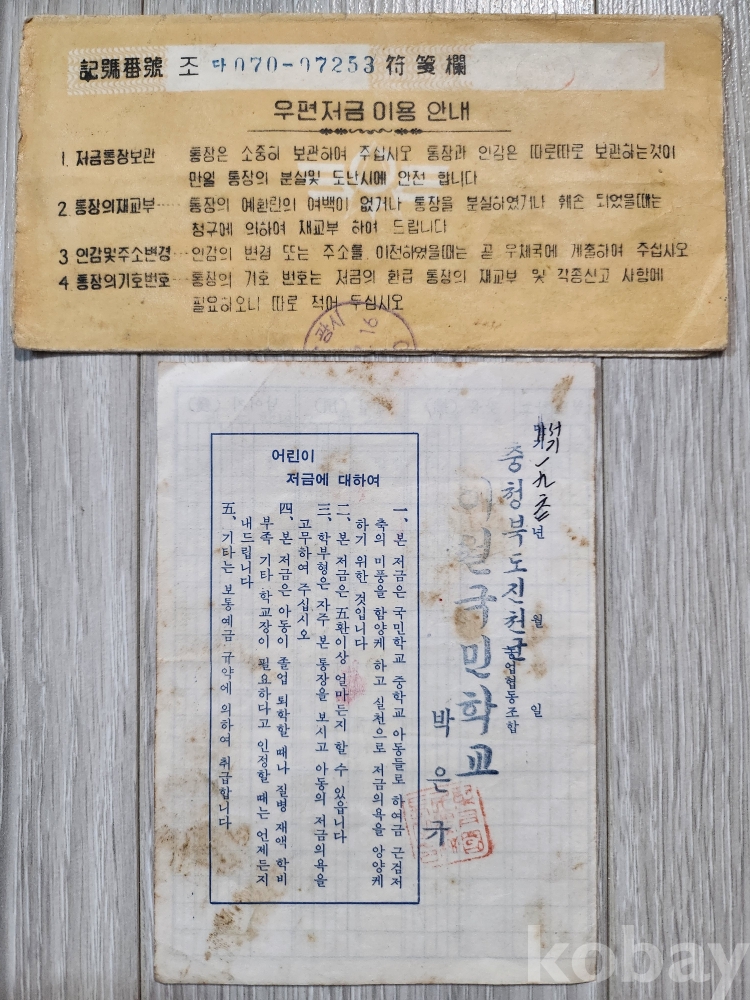 記號番號 조 다070-07253 符箋欄
우편저금 이용 안내
1. 저금통장보관 통장은 소중히 보관하여 주십시오 통장과 인감은 따로따로 보관하는것이
만일 통장의 분실및 도난시에 안전 합니다
2. 통장의재교부 통장의 예환란의 여백이 없거나 통장을 분실하였거나 훼손 되었을때는
청구에 의하여 재교부 하여 드립니다
3 인감및주소변경 인감의 변경 또는 주소를 이전하였을때는 곧 우체국에 계출하여 주십시오
4 통장의기호번호 통장의 기호 번호는 저금의 환급 통장의 재교부 및 각종신고 사항에
필요하오니 따로 적어 두십시오
16
서기 一九 년 월 일
충청북도진천군
농업협동조합
이월국민학교
박은규
어린이
저금에 대하여
一、본 저금은 국민학교 중학교 아동들로 하여금 근검저
축의 미풍을 함양케 하고 실천으로 저금의욕을 앙양케
하기 위한 것입니다
二、본 저금은 五환이상 얼마든지 할 수 있읍니다
三、학부형은 자주 본 통장을 보시고 아동의 저금의욕을
고무하여 주십시오
四、본 저금은 아동이 졸업 퇴학할 때나 질병 재액 학비
부족 기타 학교장이 필요하다고 인정할 때는 언제든지
내드립니다
五、기타는 보통예금 규약에 의하여 취급합니다
kobay